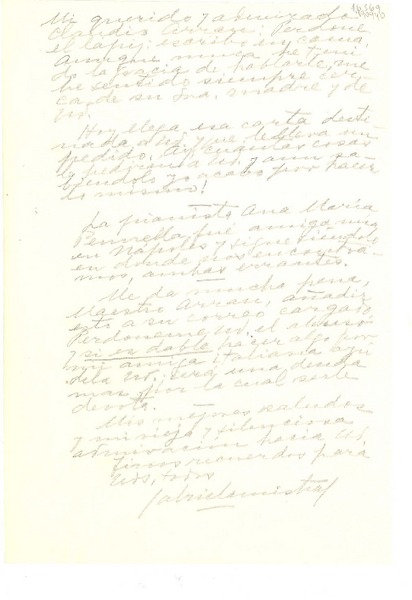 Mi querido y admirado
Claudio Arrau: Perdone
el lápiz: escribo en cama.
Aunque nunca he teni-
do la gracia de hablarle, me
he sentido siempre cer-
ca de su Sra. madre y de
Ud.
Hoy llega esa carta desti-
nada a Ud. y que lleva un
pedido. Ay, cuántas cosas
le pedirán a Ud. y aun sa-
biéndolo yo acabo por hacer
lo mismo!
La pianista Ana María
Pennella fué amiga mía
en Nápoles y sigue siéndolo
en donde nos encontra-
mos, ambas errantes.
Me da mucha pena,
Maestro Arrau, añadir
esto a su correo cargado.
Perdóneme Ud. el abuso
y si es dable hacer algo por
mi amiga italiana
Ud., será una deuda
mas por la cual seré
devota.
Mis mejores saludos
y mi vieja y silenciosa
admiración hacia Ud.
Finos recuerdos para
Uds. todos
Gabriela Mistral